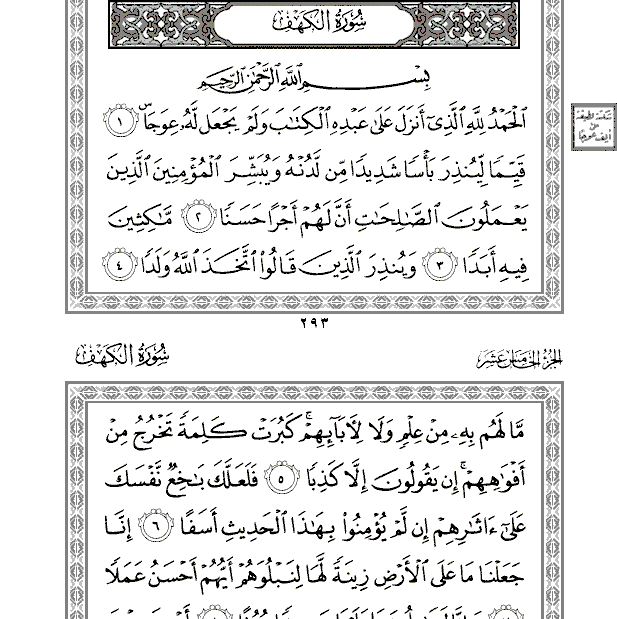 سُورَةُ الكَهْفِ
بِسْمِ ٱللَّهِ ٱلرَّحْمَٰنِ ٱلرَّحِيمِ
ٱلْحَمْدُ لِلَّهِ ٱلَّذِىٓ أَنزَلَ عَلَىٰ عَبْدِهِ ٱلْكِتَٰبَ وَلَمْ يَجْعَل لَّهُۥ عِوَجَاۜ ١
قَيِّمًا لِّيُنذِرَ بَأْسًا شَدِيدًا مِّن لَّدُنْهُ وَيُبَشِّرَ ٱلْمُؤْمِنِينَ ٱلَّذِينَ
يَعْمَلُونَ ٱلصَّٰلِحَٰتِ أَنَّ لَهُمْ أَجْرًا حَسَنًا ٢ مَّٰكِثِينَ
فِيهِ أَبَدًا ٣ وَيُنذِرَ ٱلَّذِينَ قَالُوا۟ ٱتَّخَذَ ٱللَّهُ وَلَدًا ٤
٢٩٣
الجُزْءُ الخَامِسُ عَشَرَ
سُورَةُ الكَهْفِ
مَّا لَهُم بِهِۦ مِنْ عِلْمٍ وَلَا لِأٓبَآئِهِمْ ۚ كَبُرَتْ كَلِمَةً تَخْرُجُ مِنْ
أَفْوَٰهِهِمْ ۚ إِن يَقُولُونَ إِلَّا كَذِبًا ٥ فَلَعَلَّكَ بَٰخِعٌ نَّفْسَكَ
عَلَىٰٓ ءَاثَٰرِهِمْ إِن لَّمْ يُؤْمِنُوا۟ بِهَٰذَا ٱلْحَدِيثِ أَسَفًا ٦ إِنَّا
جَعَلْنَا مَا عَلَى ٱلْأَرْضِ زِينَةً لَّهَا لِنَبْلُوَهُمْ أَيُّهُمْ أَحْسَنُ عَمَلًا